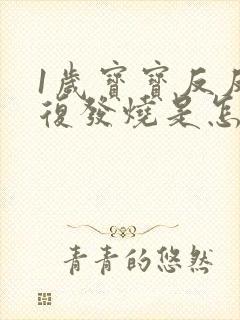 1歲寶寶反反
復發燒是怎
青青的悠然